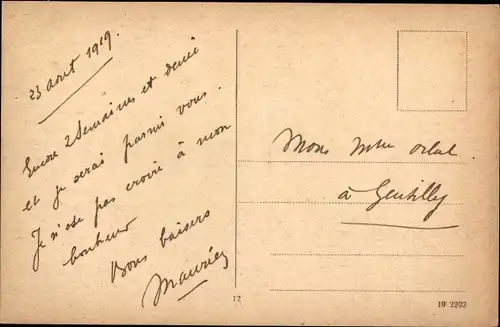 23 aout 1919.
Encore 2 Semaines et demi
et je serai parmi vous.
Je n'ose pas croire à mon
bonheur
Bons baisers
Maurice
Mons Mme
à Gentilly
12
19 2292